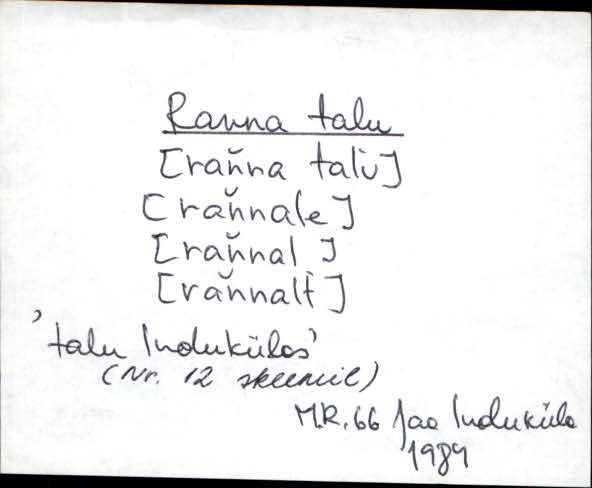 Ranna talu
[ran̆na talu̇]
[ran̆nale]
[ran̆nal]
[ran̆nalt]
'talu Indukülas'
(Nr. 12 skeemil)
M.R. 66 Jaa Induküla
1989